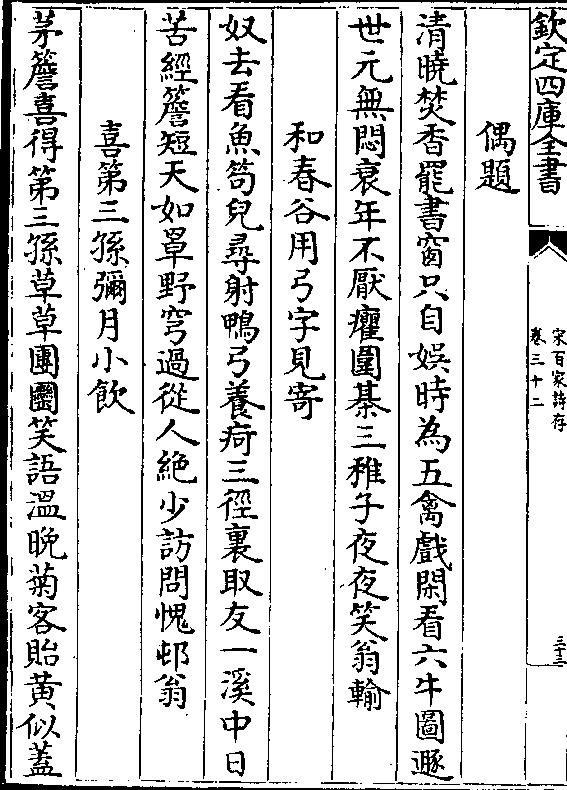 欽定四庫全書
宋百家詩存
卷三十二
三十三
偶題
清曉焚香罷書窗只自娛時為五禽戲閑看六牛圖遯
世元無悶衰年不厭癯圍棊三稚子夜夜笑翁輸
和春谷用弓字見寄
奴去看魚笱兒尋射鴨弓養疴三徑裏取友一溪中日
苦經簷短天如罩野穹過從人絶少訪問愧邨翁
喜第三孫彌月小飲
茅簷喜得第三孫草草團圞笑語溫晩菊客貽黃似蓋